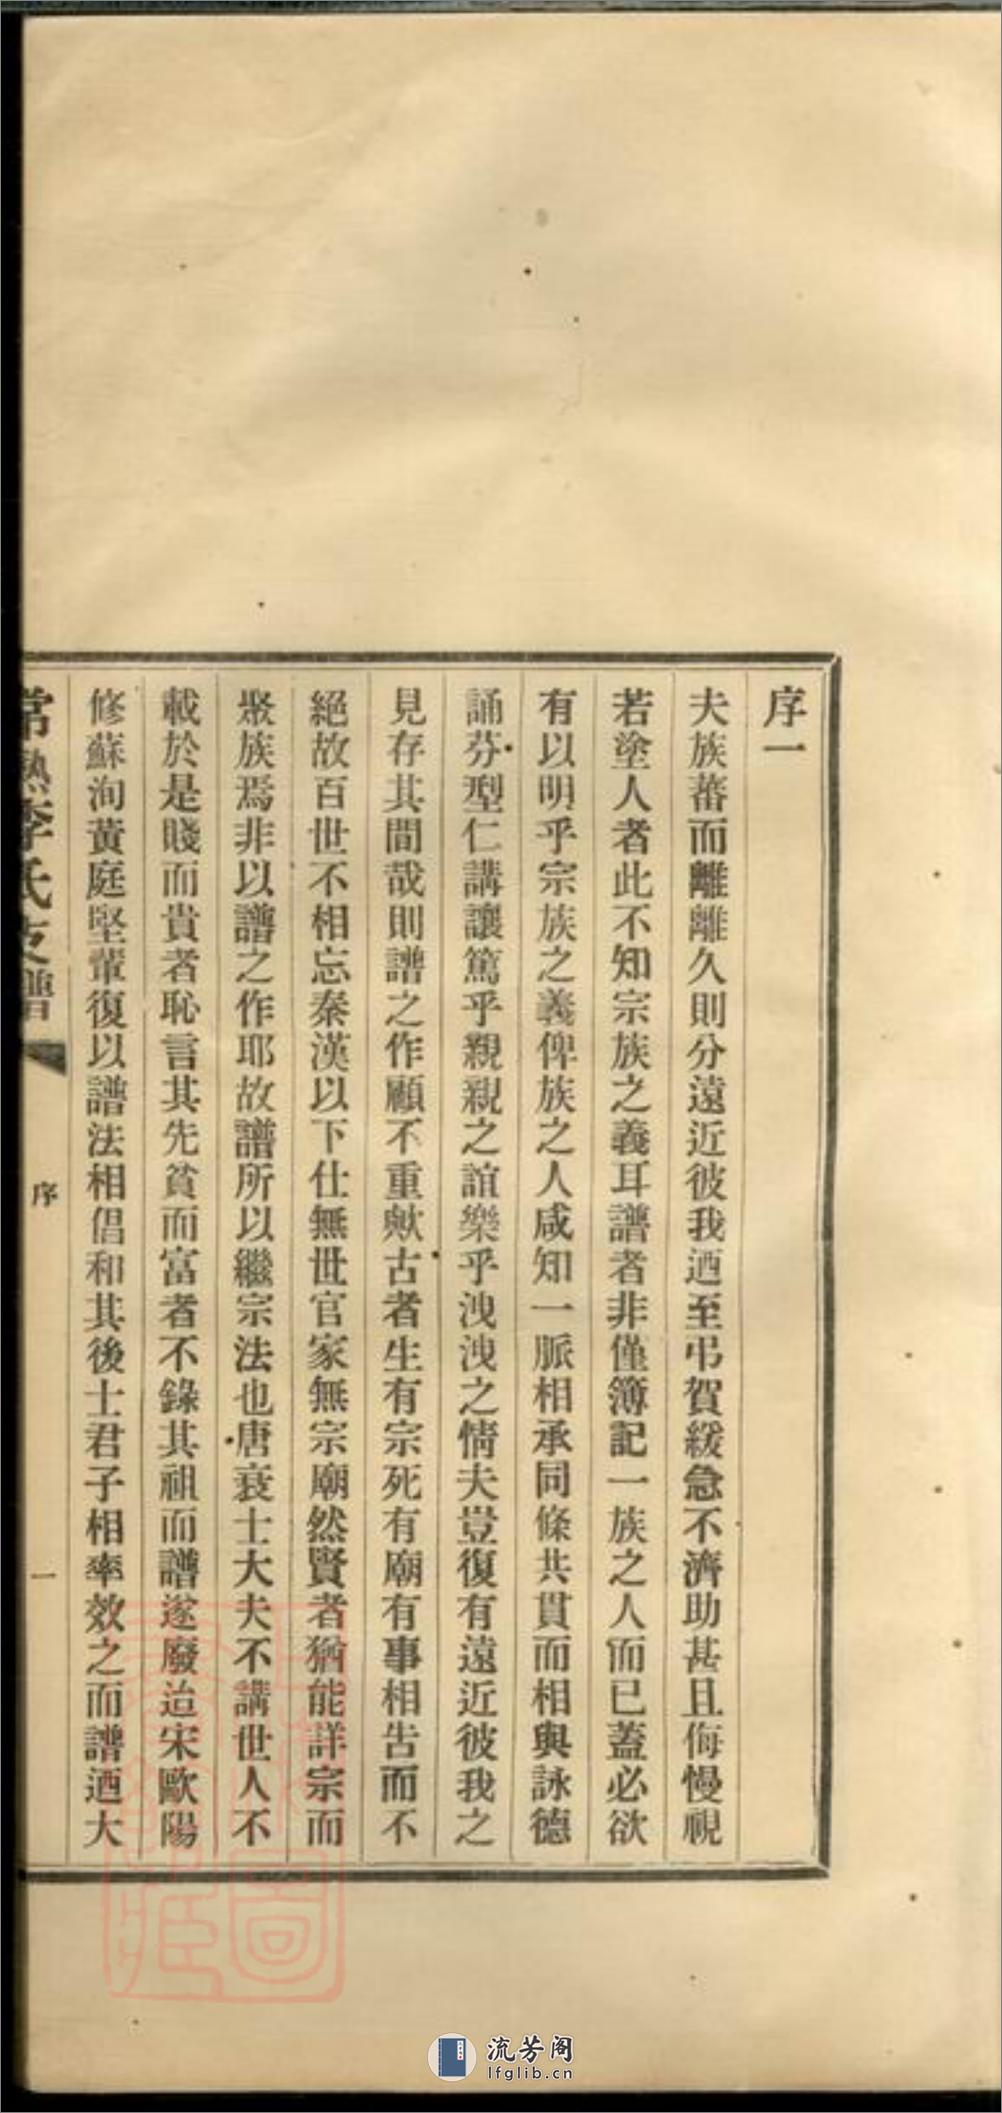 序一
夫族蕃而離離久則分遠近彼我迺至弔賀緩急不濟助甚且侮慢視
若塗人者此不知宗族之義耳譜者非僅簿記一族之人而已蓋必欲
有以明乎宗族之義俾族之人咸知一脈相承同條共貫而相與詠德
誦芬型仁講讓篤乎親親之誼樂乎洩洩之情夫豈復有遠近彼我之
見存其間哉則譜之作顧不重歟古者生有宗死有廟有事相告而不
絕故百世不相忘秦漢以下仕無世官家無宗廟然賢者猶能詳宗而
聚族焉非以譜之作耶故譜所以繼宗法也唐衰士大夫不講世人不
載於是賤而貴者恥言其先貧而富者不錄其祖而譜遂廢迨宋歐陽
修蘇洵黃庭堅輩復以譜法相倡和其後士君子相率效之而譜迺大
常熟李氏支譜
序
一
流芳阁
lfglib.cn